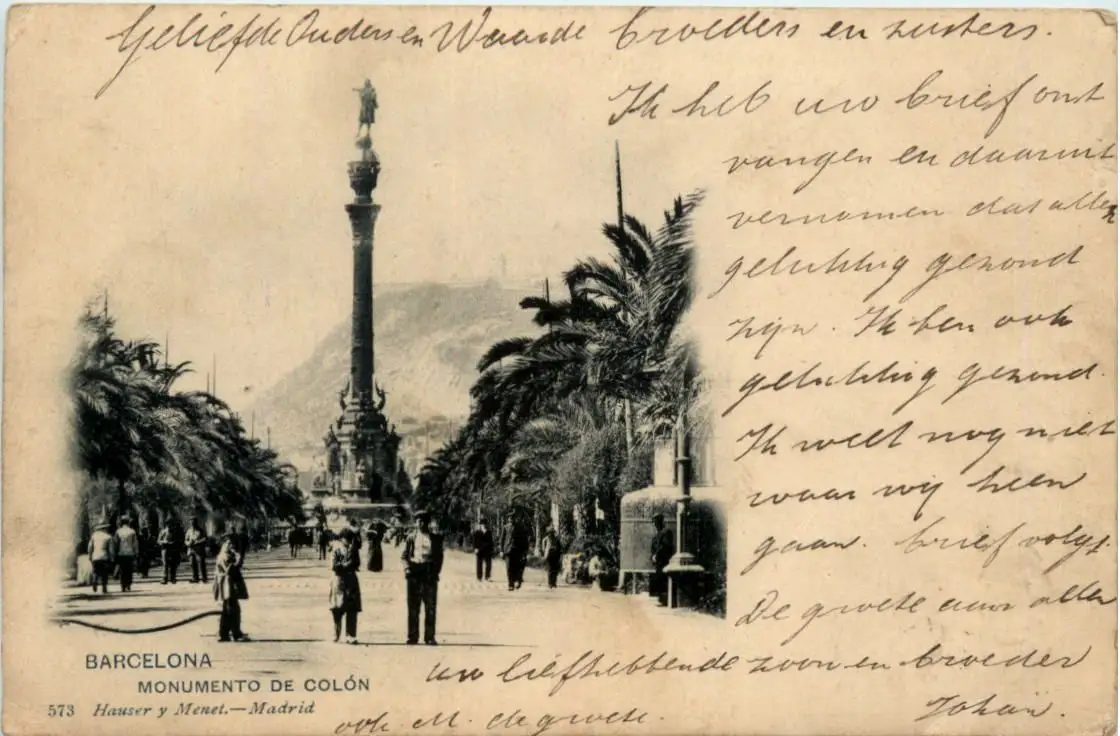 Geliefde Ouders en Waarde broeders en zusters.
Ik heb uw brief ont
vangen en daaruit
vernomen dat allen
gelukkig gezond
zijn. Ik ben ook
gelukkig gezond.
Ik weet nog niet
waar wij heen
gaan. brief volgt.
De groete aan allen
uw liefhebbende zoon en broeder
Johan.
ook M. de groete.
BARCELONA
MONUMENTO DE COLÓN
573 Hauser y Menet.—Madrid